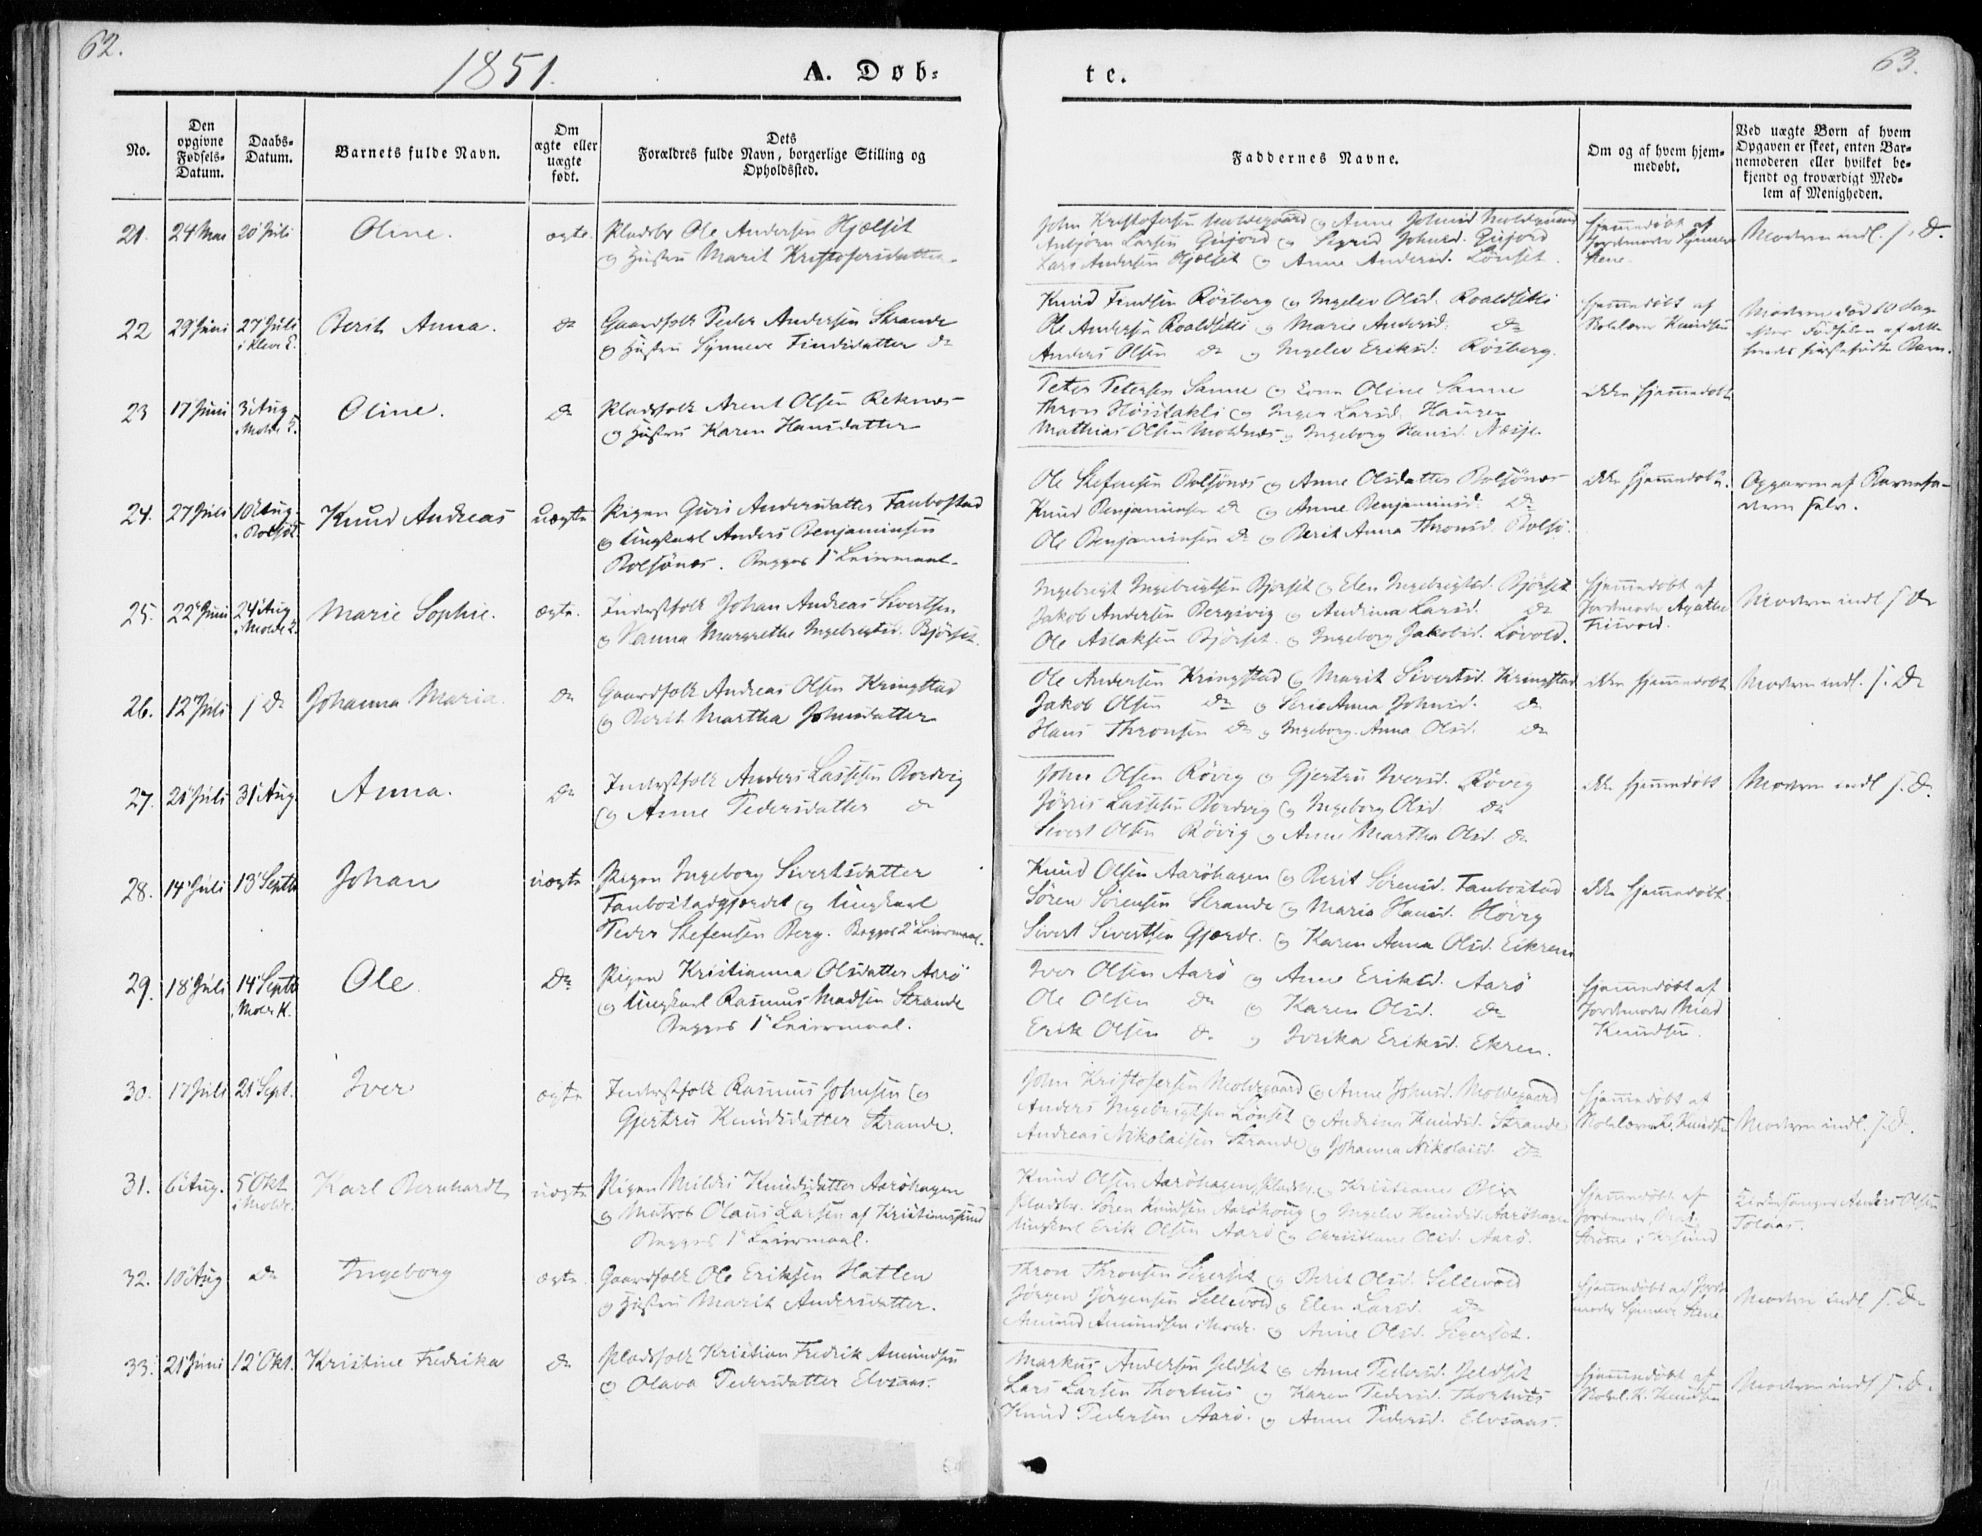 62.
1851.
A. Døb-
No.
Den opgivne Fødsels-Datum.
Daabs-Datum.
Barnets fulde Navn.
Om ægte eller uægte født.
Dets
Forældres fulde Navn, borgerlige Stilling og
Opholdssted.
21. 24 Mai 20 Juli Oline. ægte. Pladsbr Ole Andersen Hjælset
og Hustru Marit Kristofersdatter
22 29 Juni 27 Juli i Kleve K. Berit Anna. do Gaardfolk Peder Andersen Strande
og Hustru Synneve Findsdatter do
23 17 Juni 3 Aug i Molde K. Oline. do Pladsfolk Arent Olsen Reknes
og Hustru Karen Hansdatter
24. 27 Juli 10 Aug. i Bolsø K. Knud Andreas uægte Pigen Guri Andersdatter Fanbostad
og Ungkarl Anders Benjaminsen
Bolsønes. Begges 1ste Leiermaal.
25. 22 Juni 24 Aug i Molde K. Marie Sophie. ægte. Inderstfolk Johan Andreas Sivertsen
og Hanna Margrethe Ingebrigtsd. Bjørset.
26. 12 Juli s. D. Johanna Maria. do Gaardfolk Andreas Olsen Kringstad
og Berit Martha Johnsdatter
27. 21 Juli 31 Aug. Anna. do Inderstfolk Anders Lassesen Bordvig
og Anne Pedersdatter do
28. 14 Juli 13 Septb Johan uægte Pigen Ingeborg Sivertsdatter
Fanbostadgjerdet og Ungkarl
Peder Stefensen Berg. Begges 2det Leiermaal.
29. 18 Juli 14 Septb Molde K. Ole do Pigen Kristianna Olsdatter Aarø
og Ungkarl Rasmus Madsen Strande
Begges 1ste Leiermaal.
30. 17 Juli 21 Sept. Iver ægte Inderstfolk Rasmus Johnsen og
Gjertru Knudsdatter Strande.
31. 6 Aug. 5 Okt i Molde. Karl Bernhardt uægte Pigen Mildri Knudsdatter Aarøhagen
og Matros Olaus Larsen af Kristianssund
Begges 1ste Leiermaal.
32. 10 Aug do Ingeborg ægte Gaardfolk Ole Eriksen Hatlen
og Hustru Marit Andersdatter.
33. 21 Juni 12 Okt. Kristine Fredrika do Pladsfolk Kristian Fredrik Amundsen
og Olava Pedersdatter Elvsaas.
te.
63.
Faddernes Navne.
Om og af hvem hjem-
medøbt.
Ved uægte Børn af hvem
Opgaven er skeet, enten Bar-
nemoderen eller hvilket be-
kjendt og troværdigt Med-
lem af Menigheden.
John Kristofersen Moldegaard og Anne Johnsd. Moldegaard
Anbjørn Larsen Gujord og Sigrid Johnsd. Gujord
Lars Andersen Hjælset og Anne Andersd. Lønset.
Hjemmedøbt af
Jordmoder Synneve
Stene.
Moderen indl. s. D.
Knud Findsen Røsberg og Ingelev Olsd. Roaldsetli
Ole Andersen Roaldsetli og Marie Andersd. do
Anders Olsen do og Ingelev Eriksd. Røsberg.
Hjemmedøbt af
Skolelærer Knudsen
Moderen død 10 Dage
efter Fødselen af dette
hendes førstefødte Barn.
Peter Petersen Sanne og Kone Oline Sanne
Thron Høistakli og Inger Larsd. Haugen
Mathias Olsen Moldnes og Ingeborg Hansd. Næsje.
ikke hjemmedøbt
Ole Stefensen Bolsønes og Anne Olsdatter Bolsønes
Knud Benjaminsen do og Anne Benjaminsd. do
Ole Benjaminsen do og Berit Anna Thronsd. Bolsø.
ikke hjemmedøbt.
Opgaven af Barnefa-
deren selv.
Ingebrigt Ingebrigtsen Bjørset og Elen Ingebrigtsd. Bjørset
Jakob Andersen Bergsvig og Andrina Larsd. do
Ole Aslaksen Bjørset. og Ingeborg Jakobsd. Løvold.
Hjemmedøbt af
Jordmoder Agathe
Friisvold.
Moderen indl s D
Ole Andersen Kringstad og Marit Sivertsd. Kringstad
Jakob Olsen do og Seria Anna Johnsd. do
Hans Thronsen do og Ingeborg Anna Olsd. do
ikke hjemmedøbt
Moderen indl. s. D
John Olsen Røvig og Gjertru Iversd. Røvig
Jørris Lassesen Bordvig og Ingeborg Olsd do
Sivert Olsen Røvig og Anne Martha Olsd. do
ikke hjemmedøbt
Moderen indl s. D.
Knud Olsen Aarøhagen og Berit Sørensd. Fanbostad
Søren Sørensen Strande og Maria Hansd. Høvig
Sivert Sivertsen Gjerde. og Karen Anna Olsd. Eikrem
ikke hjemmedøbt.
Iver Olsen Aarø og Anne Eriksd. Aarø
Ole Olsen do og Karen Olsd. do
Erik Olsen do og Jorika Eriksd. Ekren.
Hjemmedøbt af
Jordmoder Mad
Knudsen.
John Kristofersen Moldegaard og Anne Johnsd. Moldegaard
Anders Ingebrigtsen Lønset og Andrina Knudsd. Strande
Andreas Nikolaisen Strande og Johanna Nikolaisd. do
Hjemmedøbt af
Skolelærer K. Knudsen
Moderen indl. s. D.
Knud Olsen Aarøhagen, Pladsbr. og Kristiane Blix
Pladsbr. Søren Knudsen Aarøhoug og Ingelev Knudsd. Aarøhagen
Ungkarl Erik Olsen Aarø og Christiane Olsd. Aarø.
Hjemmedøbt af
Jordmoder
Strømme i Krsund
Kirkesanger Anders Olsen
Tolaas.
Thron Thronsen Sigerset og Berit Olsd. Sellevold
Jørgen Jørgensen Sellevold og Elen Larsd. do
Amund Amundsen i Molde. og Anne Olsd. Sigerset.
Hjemmedøbt af Jord-
moder Synneve Stene
Moderen indl. s. D.
Markus Andersen Jeldset og Anne Pedersd. Jeldset
Lars Larsen Thorhus og Karen Pedersd. Thorhus
Knud Pedersen Aarø. og Anne Pedersd. Elvsaas.
Hjemmedøbt af
Skolel. K. Knudsen
Moderen indl s. D.